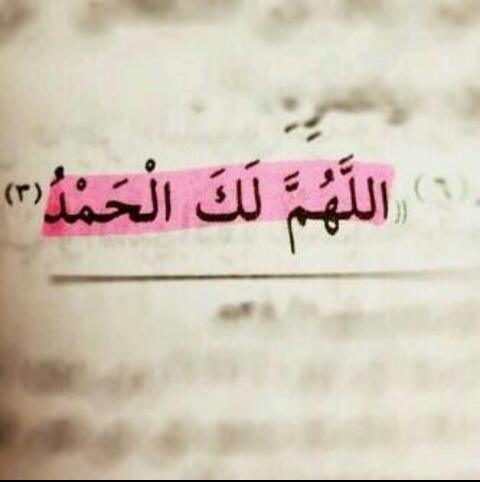 (( اللَّهُمَّ لَكَ الْحَمْدُ (٣)